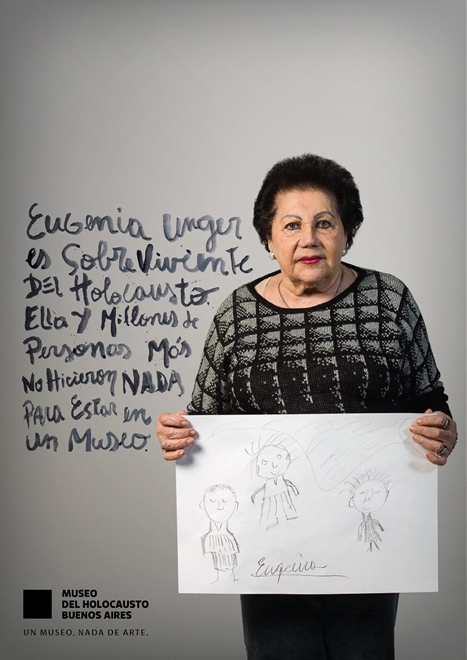 Eugenia Unger
es Sobreviviente
DEL Holocausto.
Ella y Millones de
Personas Más
No Hicieron NADA
PARA Estar en
un Museo.
Eugenia
MUSEO
DEL HOLOCAUSTO
BUENOS AIRES
UN MUSEO, NADA DE ARTE.